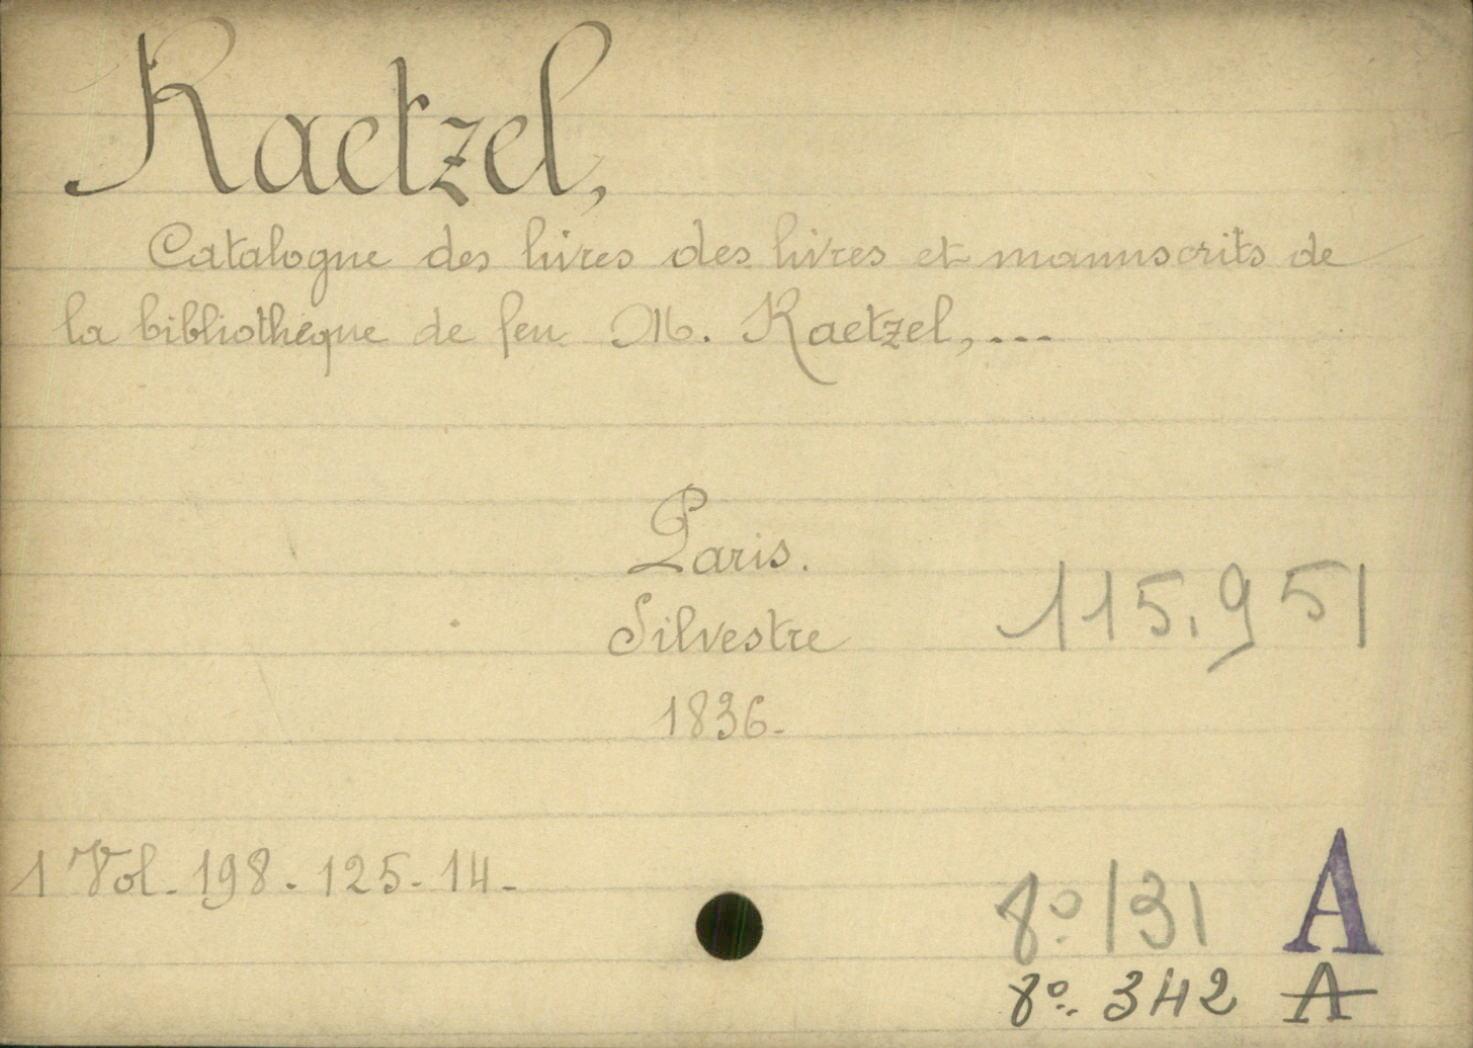 Raetzel,
Catalogue des livres des livres et manuscrits de
la bibliothèque de feu M. Raetzel, ...
Paris.
Silvestre
115.951
1836.
1 Vol. 198. 125. 14.
8° 131 A
8° 342 A